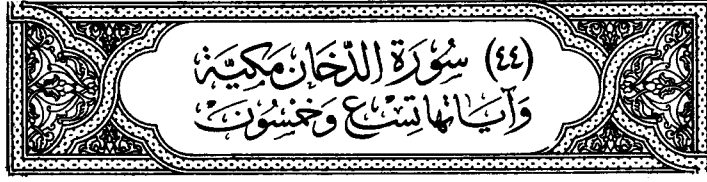 (٤٤) سُورَة الدّخَان مَكيَّة
وَآيَاتهَا تِسْع وَخَمْسُونَ